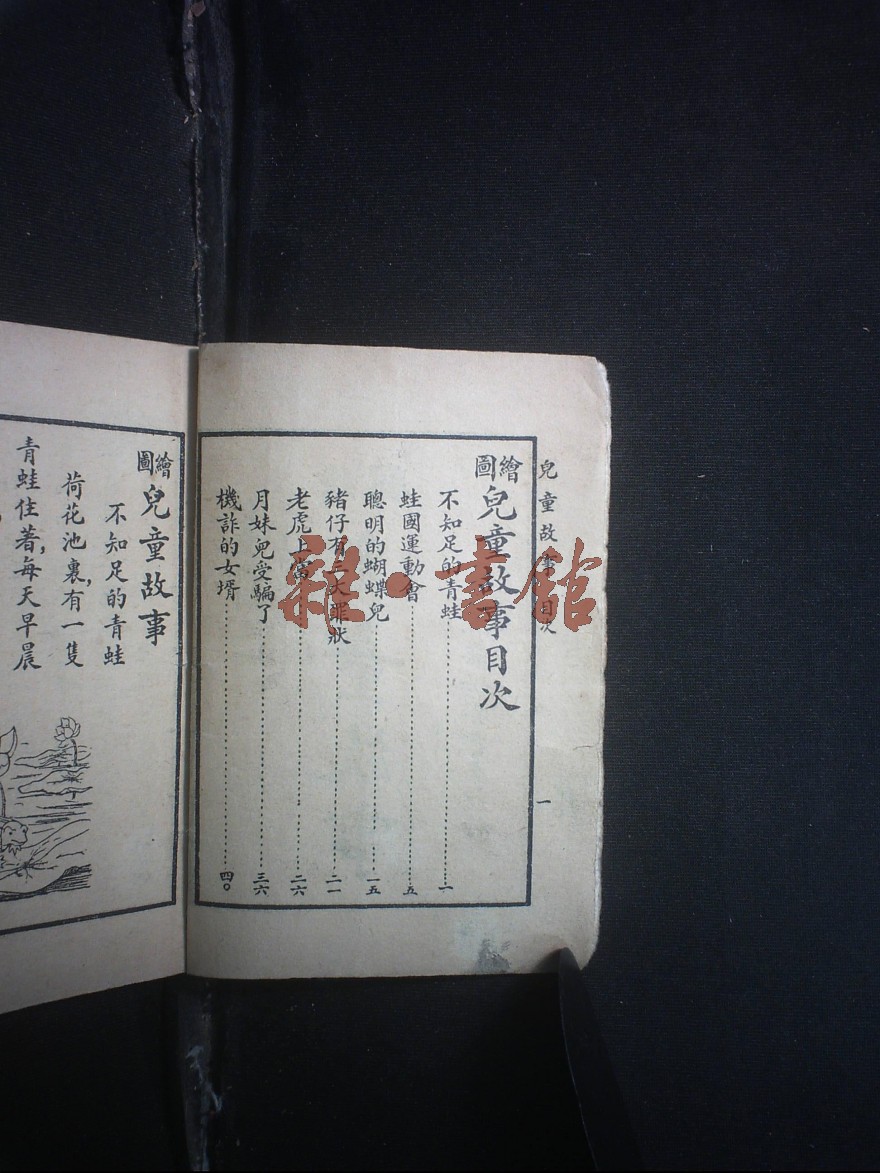 兒童故事目次
一
繪圖兒童故事目次
不知足的青蛙……一
蛙國運動會……五
聰明的蝴蝶兒……一五
豬仔有三大罪狀……二一
老虎上當……二六
月妹兒受騙了……三六
機詐的女壻……四〇
繪圖兒童故事
不知足的青蛙
荷花池裏,有一隻
青蛙住著,每天早晨
雜·書館